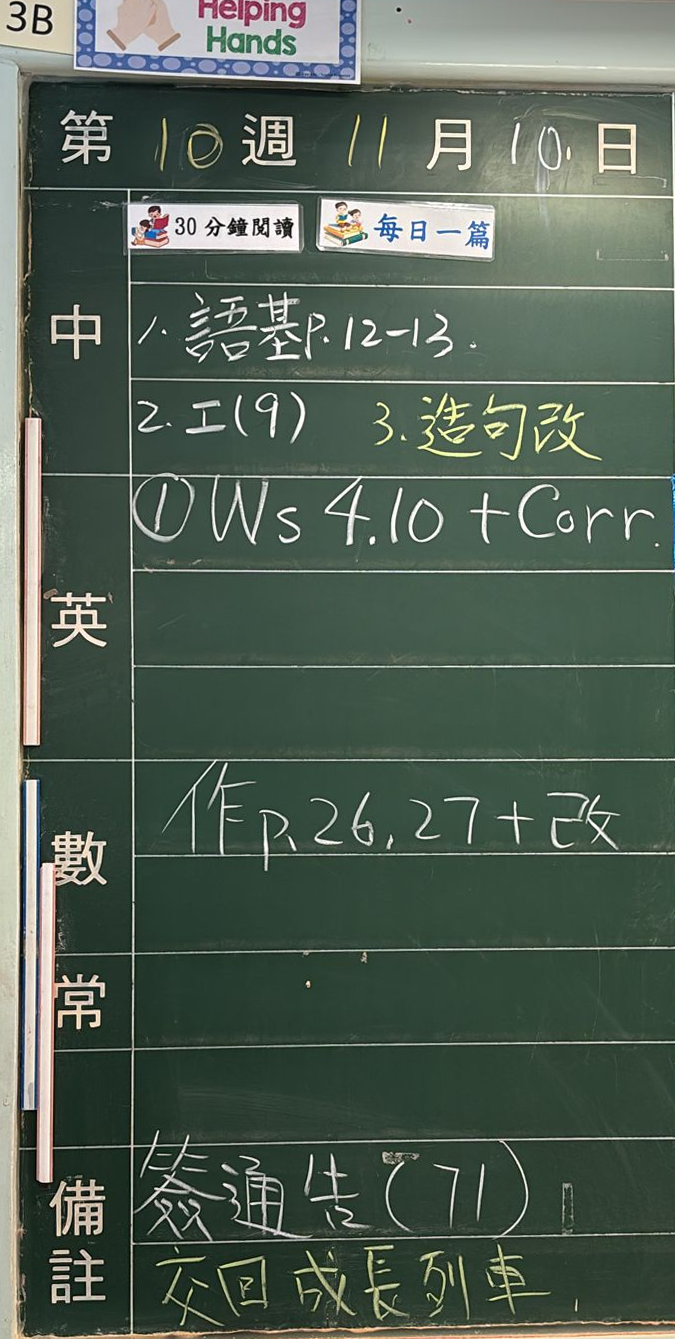 3B
Helping
Hands
第 10 週 11 月 10 日
30 分鐘閱讀 每日一篇
中
1. 語基P.12-13.
2. 工(9) 3. 造句改
英
① Ws 4.10 + Corr.
數
作p.26,27+改
常
備註
簽通告(71)
交回成長列車